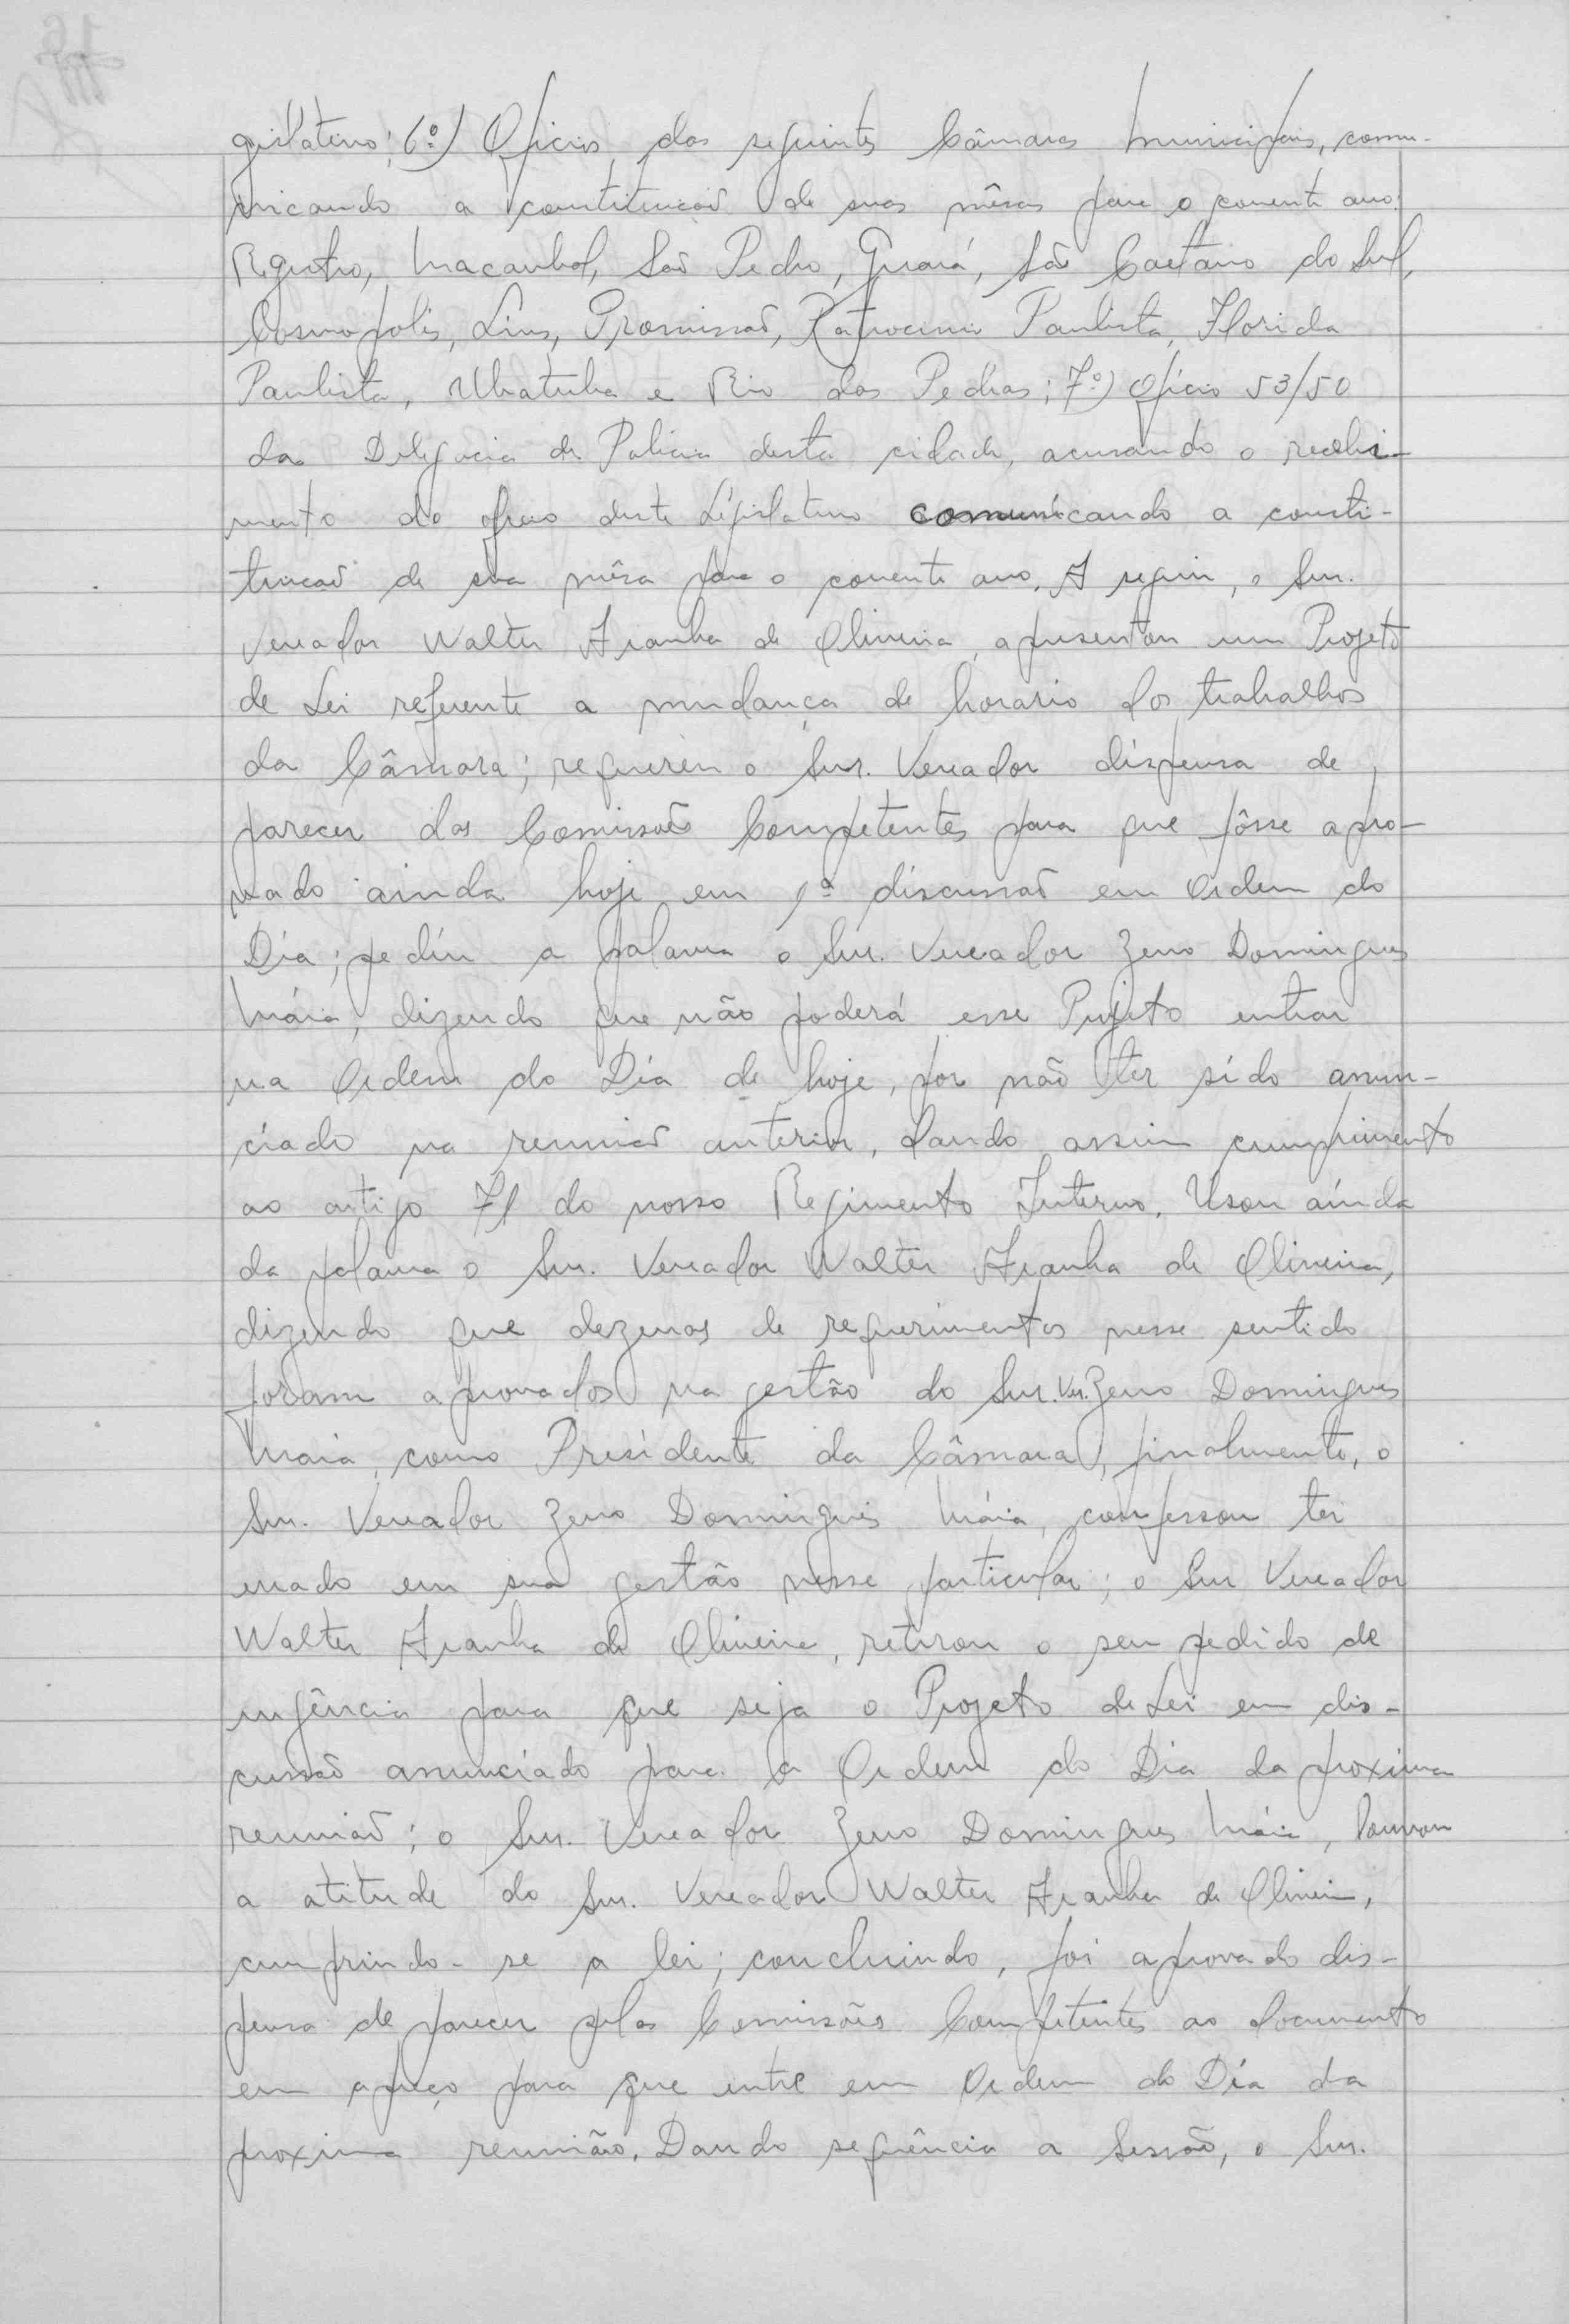 gislativo; 6º) Oficios, das seguintes Câmaras Municipais, comu-
nicando a constituicaõ de suas mêsas para o corrente ano:
Registro, Macaubal, Saõ Pedro, Guará, São Caetano do Sul,
Cosmopolis, Lins, Promissaõ, Patrocinio Paulista, Florida
Paulista, Ubatuba e Rio das Pedras; 7º) Oficio 53/50
da Delegacia de Policia desta cidade, acusando o recebi-
mento do oficio deste Legislativo comunicando a consti-
tuicaõ de sua mêsa para o corrente ano. A seguir, o Snr.
Vereador Walter Aranha de Oliveira, apresentou um Projeto
de Lei referente a mudança de horario dos trabalhos
da Câmara; requereu o Snr. Vereador dispensa de
parecer das Comissoẽs Competentes para que fôsse apro-
vado ainda hoje em 1ª discussaõ em Ordem do
Dia; pediu a palavra o Snr. Vereador Zeno Domingues
Máia, dizendo que não poderá esse Projeto entrar
na Ordem do Dia de hoje, por não ter sido anun-
ciado na reuniaõ anterior, dando assim cumprimento
ao artigo 71 do nosso Regimento Interno. Usou ainda
da palavra o Snr. Vereador Walter Aranha de Oliveira,
dizendo que dezenas de requerimentos nesse sentido
foram aprovados na gestão do Snr. Ver. Zeno Domingues
Maia, como Presidente da Câmara, finalmente, o
Snr. Vereador Zeno Domingues Máia, confessou ter
errado em sua gestão nesse particular; o Snr Vereador
Walter Aranha de Oliveira, retirou o seu pedido de
urgência para que seja o Projeto de Lei em dis-
cussaõ anunciado para a Ordem do Dia da proxima
reuniaõ; o Snr. Vereador Zeno Domingues Máia, louvou
a atitude do Snr. Vereador Walter Aranha de Oliveira,
cumprindo-se a lei; concluindo, foi aprovado dis-
pensa de parecer pelas Comissões Competentes ao documento
em apreço para que entre em Ordem do Dia da
proxima reunião. Dando sequência a Sessão, o Snr.